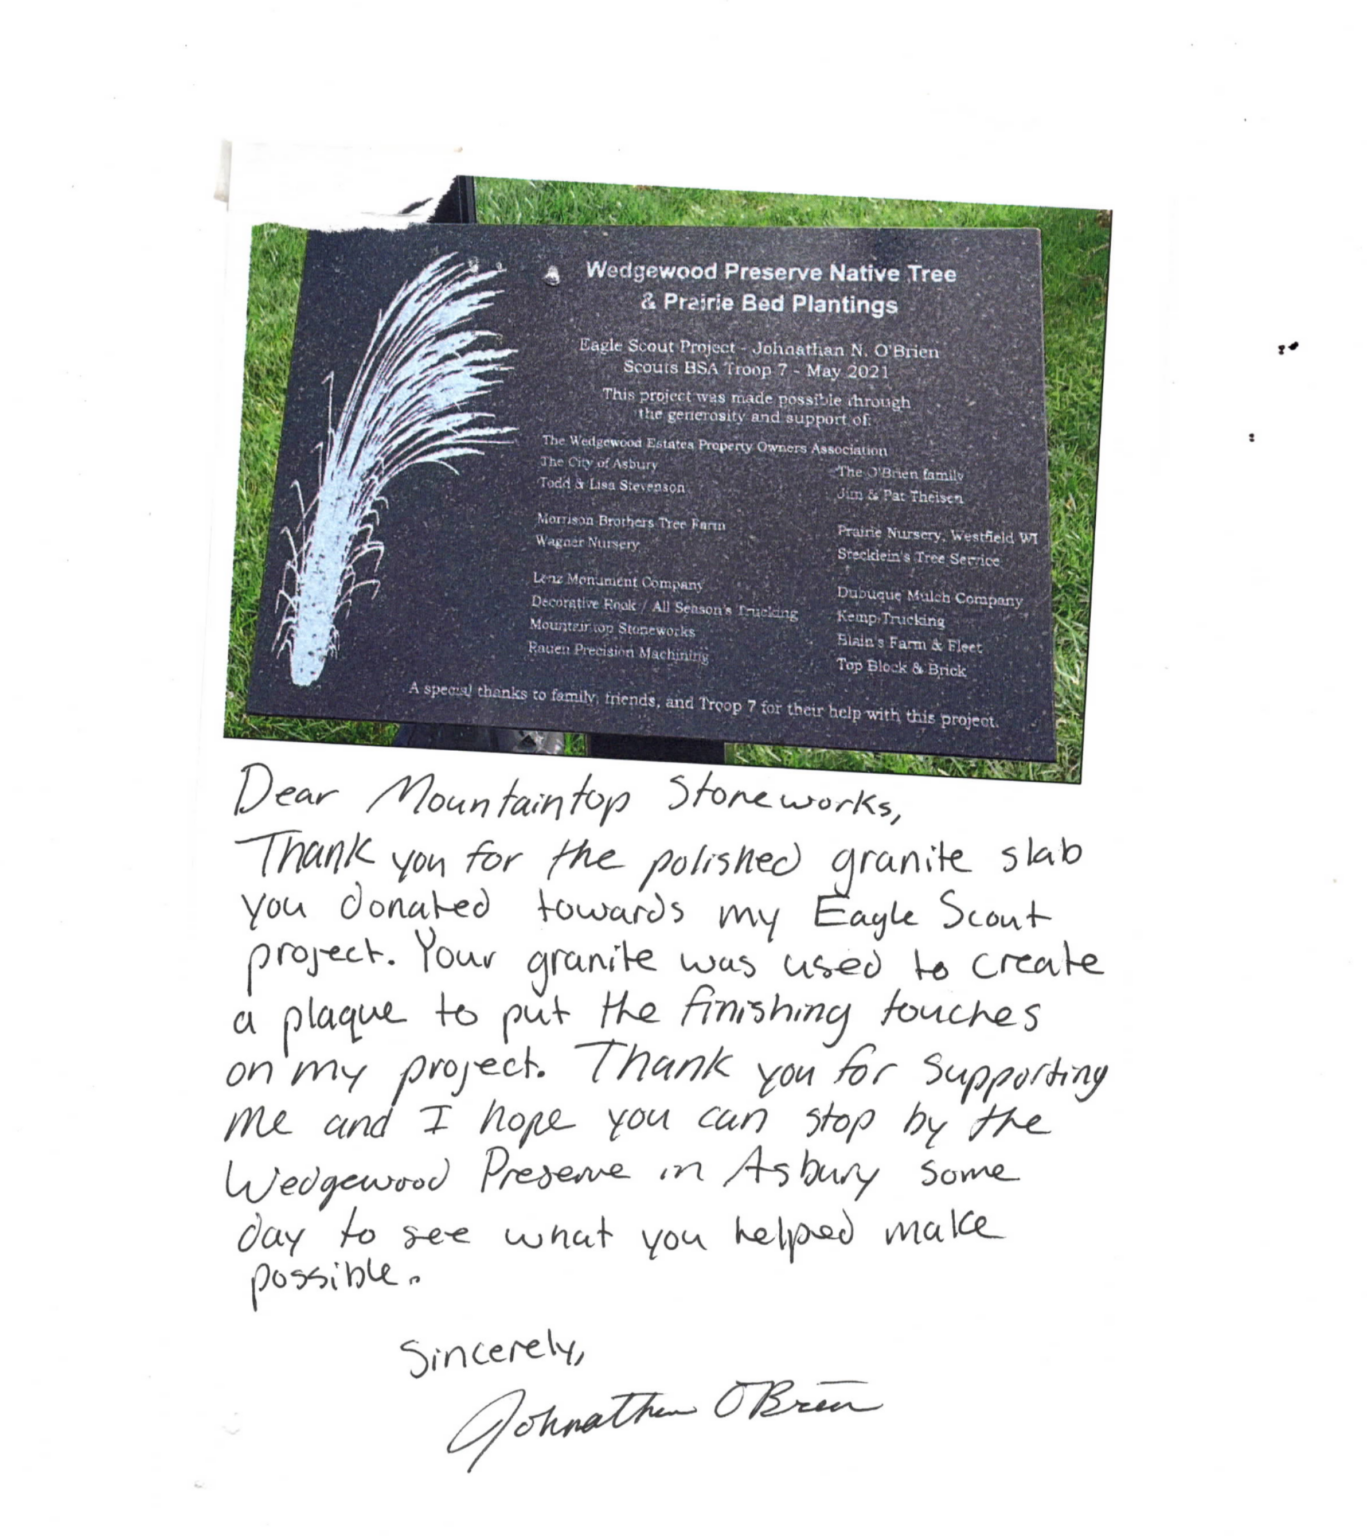 Wedgewood Preserve Native Tree
& Prairie Bed Plantings
Eagle Scout Project - Johnathan N. O'Brien
Scouts BSA Troop 7 - May 2021
This project was made possible through
the generosity and support of:
The Wedgewood Estates Property Owners Association
The City of Asbury
Todd & Lisa Stevenson
The O'Brien family
Jim & Pat Theisen
Morrison Brothers Tree Farm
Wagner Nursery
Prairie Nursery, Westfield WI
Stecklein's Tree Service
Lenz Monument Company
Decorative Rock / All Season's Trucking
Mountaintop Stoneworks
Rauen Precision Machining
Dubuque Mulch Company
Kemp Trucking
Blain's Farm & Fleet
Top Block & Brick
A special thanks to family, friends, and Troop 7 for their help with this project.
Dear Mountaintop Stoneworks,
Thank you for the polished granite slab
you donated towards my Eagle Scout
project. Your granite was used to create
a plaque to put the finishing touches
on my project. Thank you for supporting
me and I hope you can stop by the
Wedgewood Preserve in Asbury some
day to see what you helped make
possible.
Sincerely,
Johnathan O'Brien